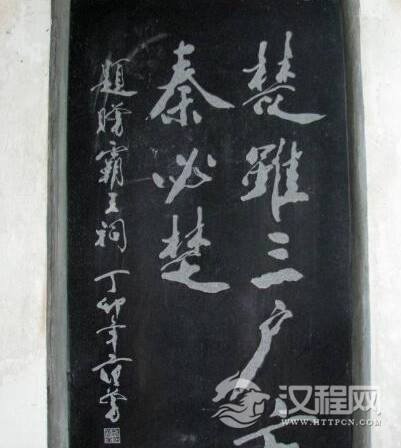 楚雖三户亡
秦必楚
題贈霸王祠 丁卯年范曾
汉程网
WWW.HTTPCN.COM